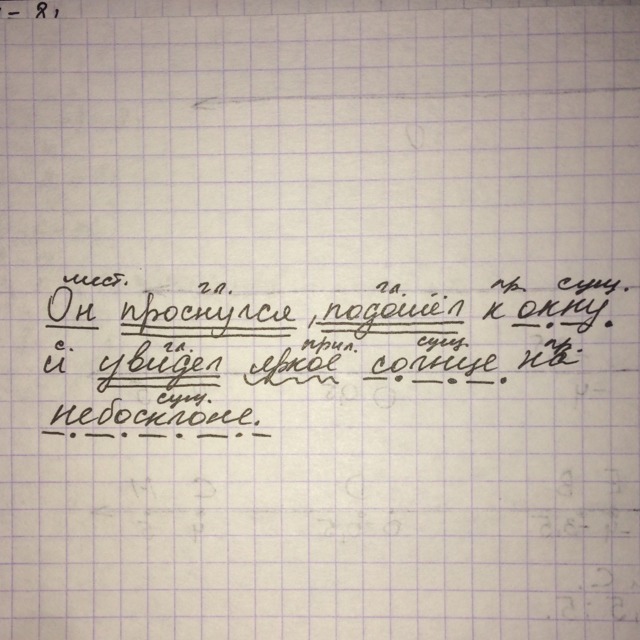 - 8,
мест. гл. гл. пр. сущ.
Он проснулся, подошёл к окну
с. гл. прил. сущ. пр.
и увидел яркое солнце на
сущ.
небосклоне.